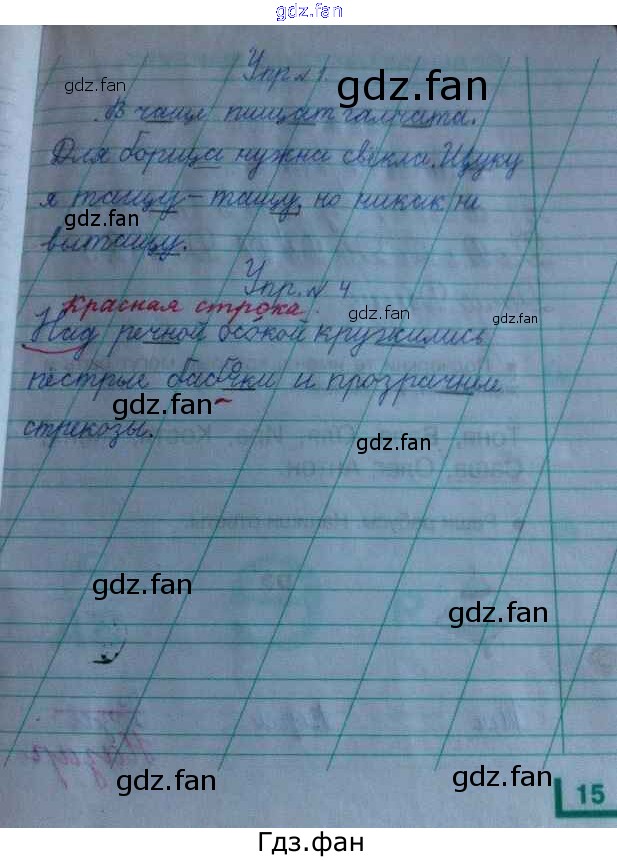 gdz.fan
Упр № 1.
gdz.fan
gdz.fan
В чаще пищат галчата.
Для борща нужна свёкла. Щуку
я тащу – тащу, но никак не
gdz.fan
вытащу.
Упр. № 4
Красная строка.
gdz.fan
gdz.fan
Над речной осокой кружились
пёстрые бабочки и прозрачные
gdz.fan
стрекозы.
gdz.fan
gdz.fan
gdz.fan
gdz.fan
gdz.fan
15
Гдз.фан